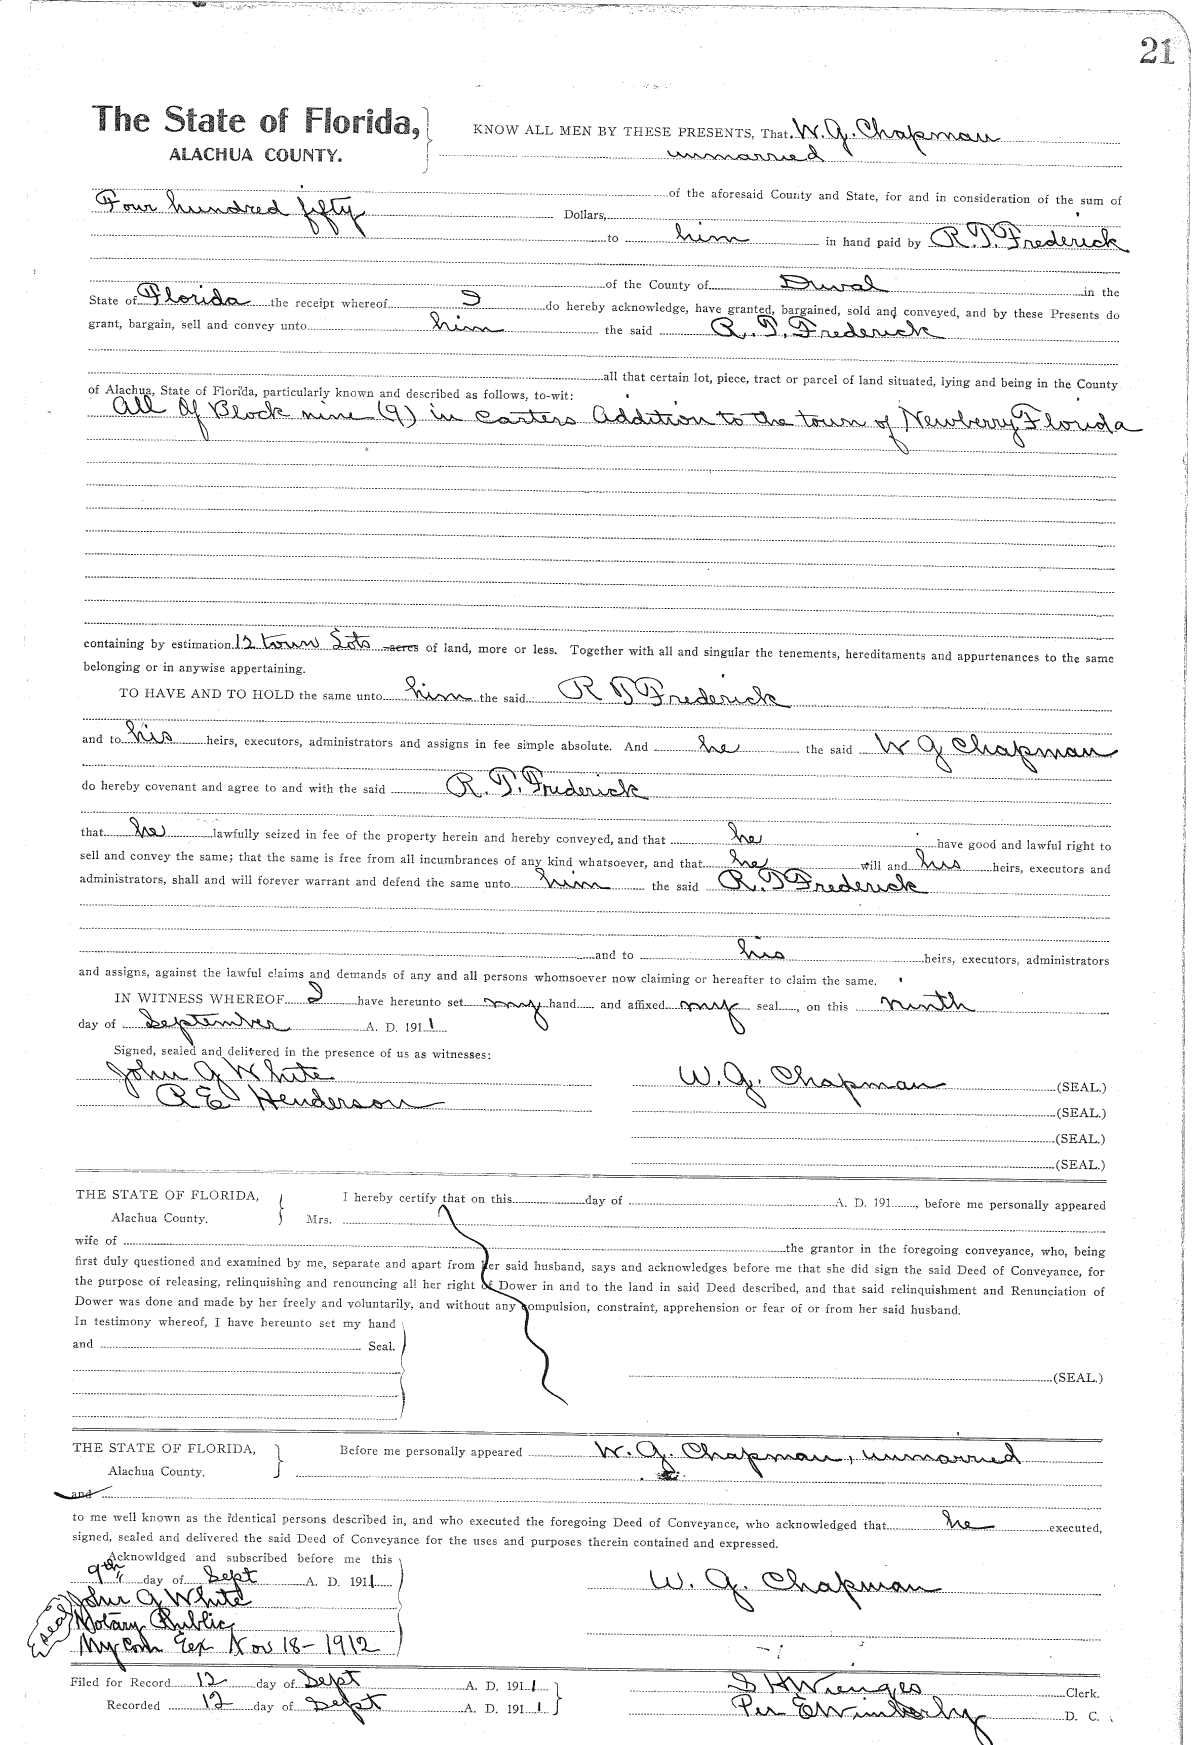 21
The State of Florida, KNOW ALL MEN BY THESE PRESENTS, That W. G. Chapman
ALACHUA COUNTY. unmarried
of the aforesaid County and State, for and in consideration of the sum of
Four hundred fifty Dollars,
to him in hand paid by R. T. Frederick
of the County of Duval in the
State of Florida the receipt whereof I do hereby acknowledge, have granted, bargained, sold and conveyed, and by these Presents do
grant, bargain, sell and convey unto him the said R. T. Frederick
all that certain lot, piece, tract or parcel of land situated, lying and being in the County
of Alachua, State of Florida, particularly known and described as follows, to-wit:
All Of Block nine (9) in Carters Addition to the town of Newberry Florida
containing by estimation 12 town Lots acres of land, more or less. Together with all and singular the tenements, hereditaments and appurtenances to the same
belonging or in anywise appertaining.
TO HAVE AND TO HOLD the same unto him the said R T Frederick
and to his heirs, executors, administrators and assigns in fee simple absolute. And he the said W G Chapman
do hereby covenant and agree to and with the said R. T. Frederick
that he lawfully seized in fee of the property herein and hereby conveyed, and that he have good and lawful right to
sell and convey the same; that the same is free from all incumbrances of any kind whatsoever, and that he will and his heirs, executors and
administrators, shall and will forever warrant and defend the same unto him the said R. T Frederick
and to his heirs, executors, administrators
and assigns, against the lawful claims and demands of any and all persons whomsoever now claiming or hereafter to claim the same.
IN WITNESS WHEREOF I have hereunto set my hand and affixed my seal, on this ninth
day of September A. D. 1911
Signed, sealed and delivered in the presence of us as witnesses:
John G White W. G. Chapman (SEAL.)
R E Henderson (SEAL.)
(SEAL.)
(SEAL.)
THE STATE OF FLORIDA, I hereby certify that on this day of A. D. 191 , before me personally appeared
Alachua County. Mrs.
wife of the grantor in the foregoing conveyance, who, being
first duly questioned and examined by me, separate and apart from her said husband, says and acknowledges before me that she did sign the said Deed of Conveyance, for
the purpose of releasing, relinquishing and renouncing all her right of Dower in and to the land in said Deed described, and that said relinquishment and Renunciation of
Dower was done and made by her freely and voluntarily, and without any compulsion, constraint, apprehension or fear of or from her said husband.
In testimony whereof, I have hereunto set my hand
and Seal.
(SEAL.)
THE STATE OF FLORIDA, Before me personally appeared W. G. Chapman, unmarried
Alachua County.
and
to me well known as the identical persons described in, and who executed the foregoing Deed of Conveyance, who acknowledged that he executed,
signed, sealed and delivered the said Deed of Conveyance for the uses and purposes therein contained and expressed.
Acknowldged and subscribed before me this
9th day of Sept A. D. 1911 W. G. Chapman
John G White
(seal) Notary Public
My Com Exp Nov 18-1912
Filed for Record 12 day of Sept A. D. 1911 S H Wienges Clerk.
Recorded 12 day of Sept A. D. 1911 Per E Wimberly D. C.